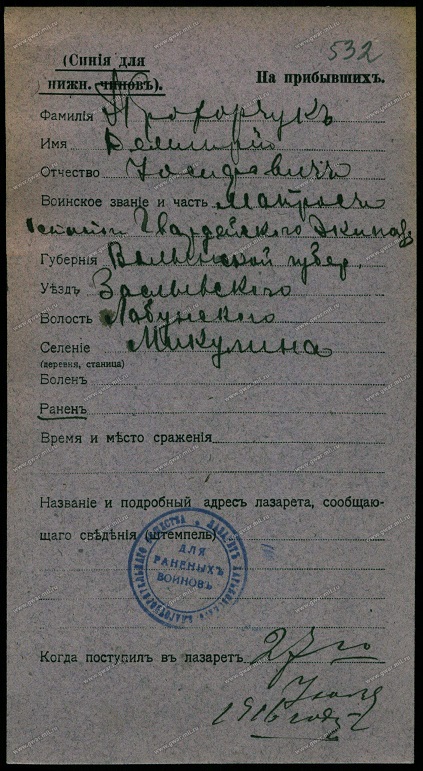 532
(Синія для
нижн. чиновъ).
На прибывшихъ.
Фамилія Прохорчукъ
Имя
Отчество Іосифовичъ
Воинское званіе и часть Матросъ
Гвардейскаго Экипажа
Губернія Волынской губер.
Уѣздъ Заславскаго
Волость Лабунскаго
Селеніе Микулина
(деревня, станица)
Боленъ
Раненъ
Время и мѣсто сраженія
Названіе и подробный адресъ лазарета, сообщаю-
щаго свѣдѣнія (штемпель)
ДЛЯ
РАНЕНЫХЪ
ВОИНОВЪ
Когда поступилъ въ лазаретъ 27го
1916 году